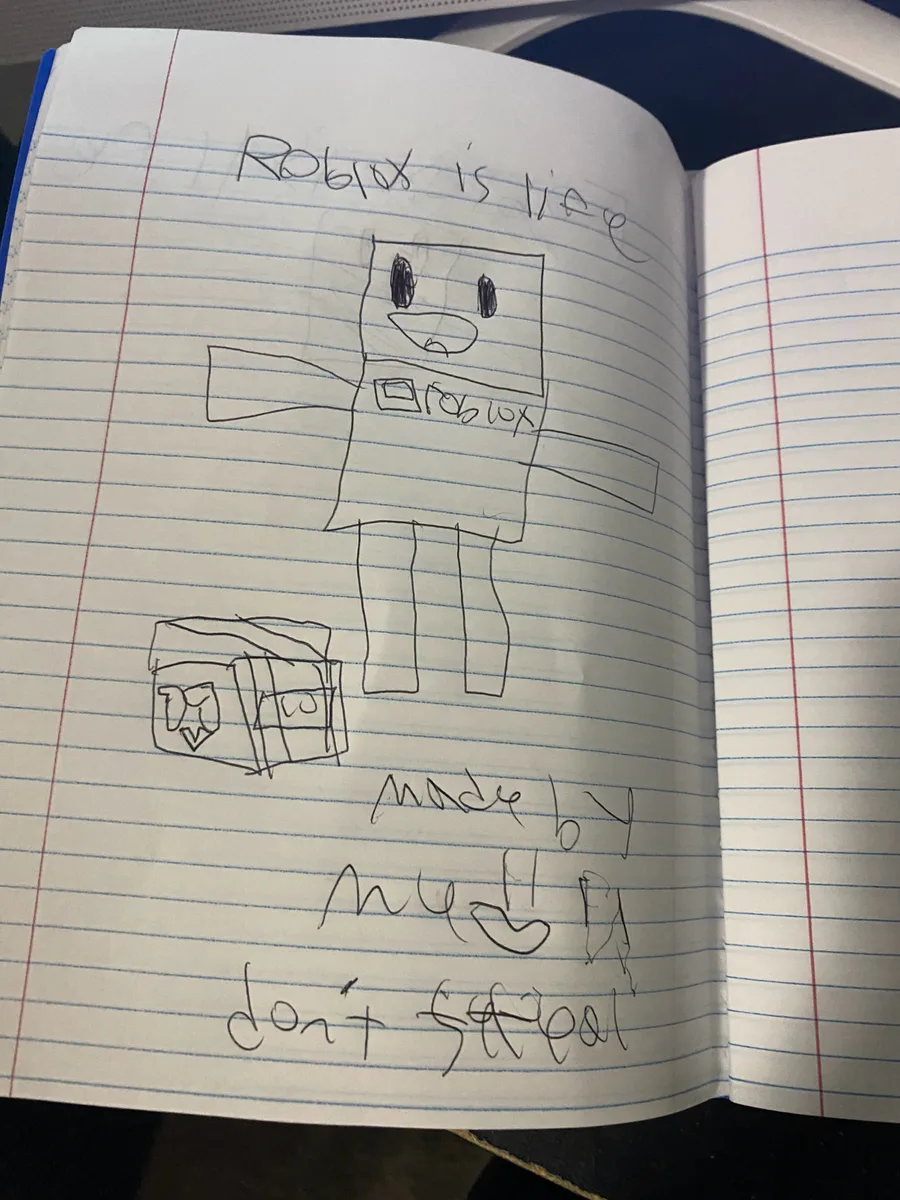 Roblox is life
roblox
made by
me
don't steal